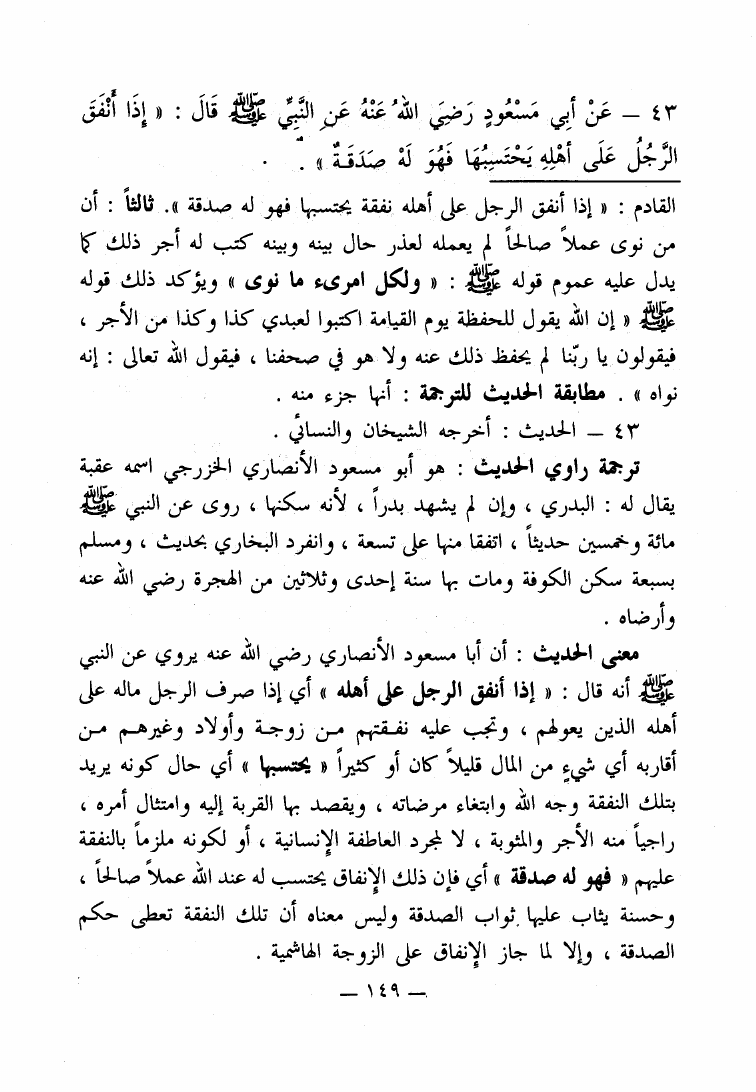 ٤٣ – عَنْ أبِي مَسْعُودٍ رَضِيَ اللهُ عَنْهُ عَنِ النَّبِيِّ ﷺ قَالَ : « إِذَا أَنْفَقَ
الرَّجُلُ عَلَى أهْلِهِ يَحْتَسِبُهَا فَهُوَ لَهُ صَدَقَةٌ » .
القادم : « إذا أنفق الرجل على أهله نفقة يحتسبها فهو له صدقة ». ثالثاً : أن
من نوى عملاً صالحاً لم يعمله لعذر حال بينه وبينه كتب له أجر ذلك كما
يدل عليه عموم قوله ﷺ : « ولكل امرىء ما نوى » ويؤكد ذلك قوله
ﷺ « إن الله يقول للحفظة يوم القيامة اكتبوا لعبدي كذا وكذا من الأجر ،
فيقولون يا ربّنا لم يحفظ ذلك عنه ولا هو في صحفنا ، فيقول الله تعالى : إنه
نواه » . مطابقة الحديث للترجمة : أنها جزء منه .
٤٣ – الحديث : أخرجه الشيخان والنسائي .
ترجمة راوي الحديث : هو أبو مسعود الأنصاري الخزرجي اسمه عقبة
يقال له : البدري ، وإن لم يشهد بدراً ، لأنه سكنها ، روى عن النبي ﷺ
مائة وخمسين حديثاً ، اتفقا منها على تسعة ، وانفرد البخاري بحديث ، ومسلم
بسبعة سكن الكوفة ومات بها سنة إحدى وثلاثين من الهجرة رضي الله عنه
وأرضاه .
معنى الحديث : أن أبا مسعود الأنصاري رضي الله عنه يروي عن النبي
ﷺ أنه قال : « إذا أنفق الرجل على أهله » أي إذا صرف الرجل ماله على
أهله الذين يعولهم ، وتجب عليه نفقتهم من زوجة وأولاد وغيرهم من
أقاربه أي شيءٍ من المال قليلاً كان أو كثيراً « يحتسبها » أي حال كونه يريد
بتلك النفقة وجه الله وابتغاء مرضاته ، ويقصد بها القربة إليه وامتثال أمره ،
راجياً منه الأجر والمثوبة ، لا لمجرد العاطفة الإنسانية ، أو لكونه ملزماً بالنفقة
عليهم « فهو له صدقة » أي فإن ذلك الإنفاق يحتسب له عند الله عملاً صالحاً ،
وحسنة يثاب عليها ثواب الصدقة وليس معناه أن تلك النفقة تعطى حكم
الصدقة ، وإلا لما جاز الإنفاق على الزوجة الهاشمية .
– ١٤٩ –